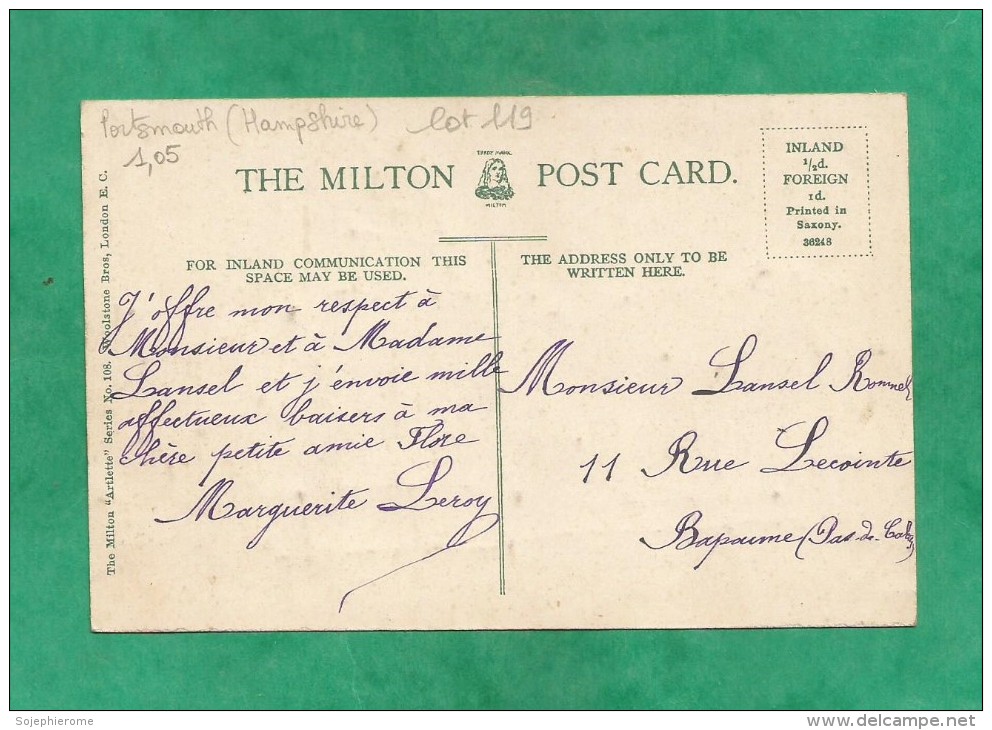 Portsmouth (Hampshire) lot 119
1,05
TRADE MARK
THE MILTON POST CARD.
MILTON
INLAND
½d.
FOREIGN
1d.
Printed in
Saxony.
36248
FOR INLAND COMMUNICATION THIS
SPACE MAY BE USED.
THE ADDRESS ONLY TO BE
WRITTEN HERE.
The Milton "Artlette" Series No. 108. Woolstone Bros, London E. C.
J'offre mon respect à
Monsieur et à Madame
Lansel et j'envoie mille
affectueux baisers à ma
chère petite amie Flore
Marguerite Leroy
Monsieur Lansel
11 Rue Lecointe
Bapaume (Pas-de-Calais)
Sojephierome
delcampe.net